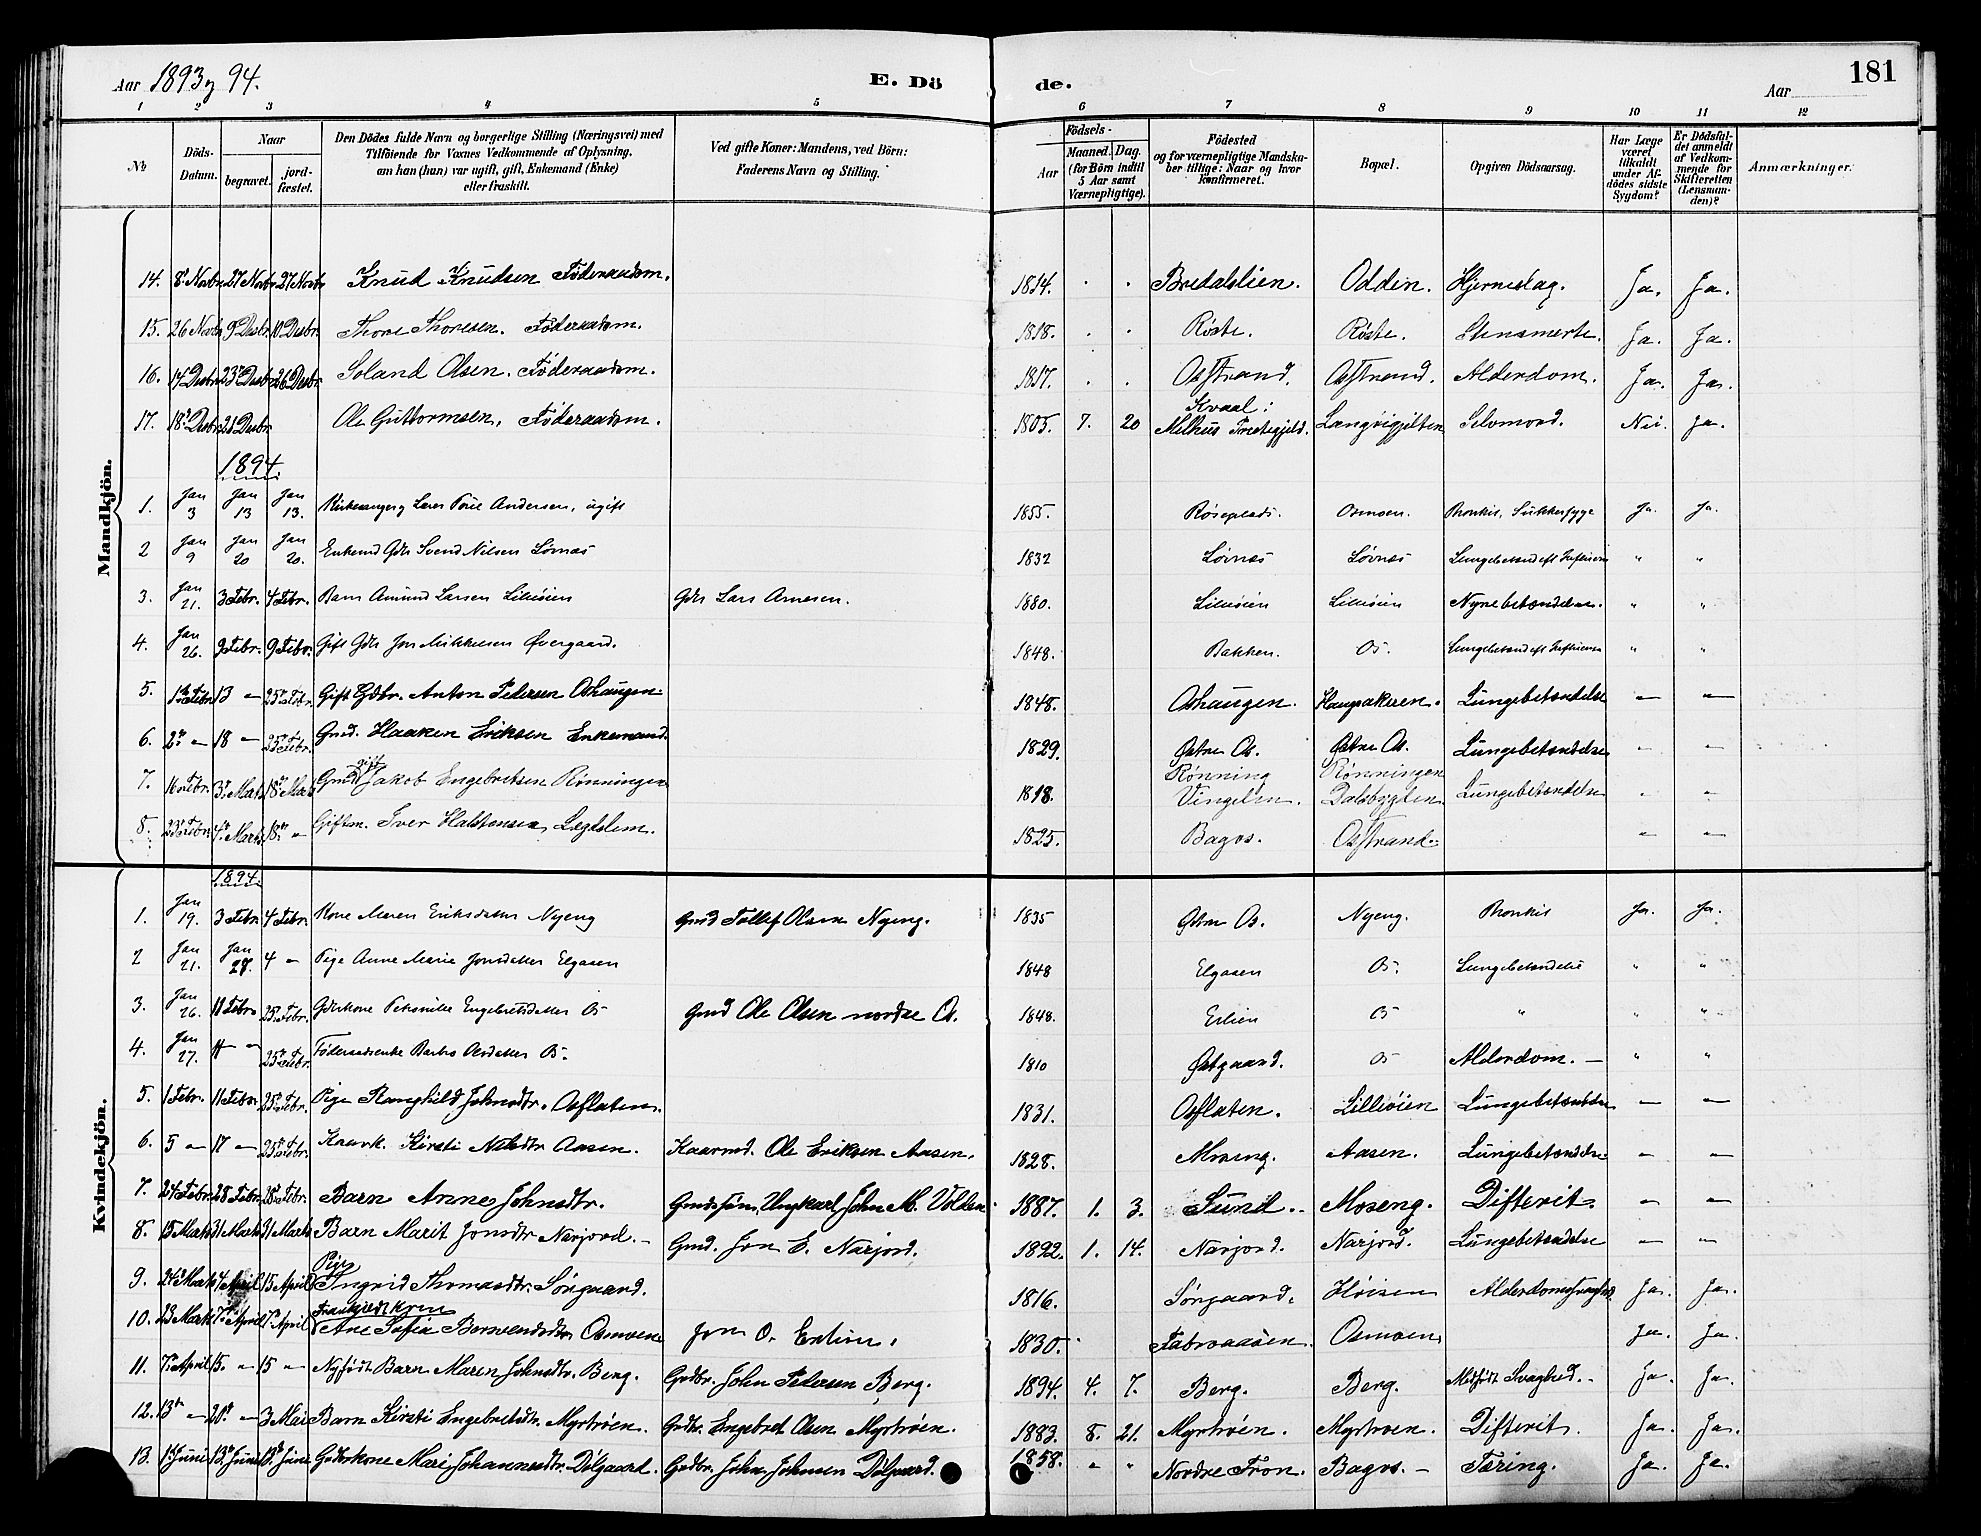 Aar 1893 og 94. E. Dö de. Aar 181
1 2 3 4 5 6 7 8 9 10 11 12
No Döds-Datum. Naar begravet. jordfæstet. Den Dödes fulde Navn og borgerlige Stilling (Næringsvei) med Tilföiende for Voxnes Vedkommende af Oplysning, om han (hun) var ugift, gift, Enkemand (Enke) eller fraskilt. Ved gifte Koner: Mandens, ved Börn: Faderens Navn og Stilling. Födsels- Aar Maaned. Dag. (for Börn indtil 5 Aar samt Værnepligtige). Födested og for værnepligtige Mandskaber tillige: Naar og hvor konfirmeret. Bopæl. Opgiven Dödsaarsag. Har Læge været tilkaldt under Afdödes sidste Sygdom? Er Dödsfaldet anmeldt af Vedkommende for Skifteretten (Lensmanden)? Anmærkninger.
Mandkjön.
14. 8de Novbr. 27 Novbr. 27 Novbr. Knud Knudsen Föderaadsm. 1814. Bredalslien. Odden. Hjerneslag. Ja. Ja.
15. 26 Novbr. 9de Desbr. 10 Desbr. Thore Thoresen. Föderaadsm. 1818. Røste. Røste. Stensmerte. Ja. Ja.
16. 14 Desbr. 23de Desbr. 26 Desbr. Soland Olsen. Föderaadsm. 1817. Osstrand. Osstrand. Alderdom. Ja. Ja.
17. 18de Desbr. 21 Desbr. Ole Guttormsen. Föderaadsm. 1805. 7. 20 Kvaal i Melhus Præstegjeld. Langvigjelten Selvmord. Nei. Ja.
1894.
1. Jan 3 Jan 13 Jan 13. Kirkesanger og Lærer Andersen, ugift 1855. Røseplads. Osmoen. Bronkit, Sukkersyge Ja. Ja.
2 Jan 9 Jan 20 Jan 20. Enkemd Gdr Svend Nilsen Lövnæs 1832 Lövnæs Lövnæs Lungebetændelse " "
3. Jan 21. 3 Febr. 4 Febr. Barn Amund Larsen Lilleöien Gdr Lars Arnesen. 1880. Lilleöien Lilleöien Nyrebetændelse. " "
4. Jan 26. 9 Febr. 9 Febr. Gift Gdr Jon Mikkelsen Övergaard. 1848. Bakken. Os. " "
5. 1ste Febr. 13 — 25de Febr. Gift Gdbr. Anton Pedersen Oshaugen 1848. Oshaugen. Haugakeren. Lungebetændelse — —
6. 2de — 18 — 25de Febr. Gmd. Haaken Eriksen Enkemand. 1829. Østre Os. Østre Os. Lungebetændelse — —
7. 16de Febr. 3de Marts 18de Marts Gmd. gift Jakob Engebretsen Rønningen 1818. Rønning Vingelen. Rønningen Dalsbygden. Lungebetændelse — —
8. 23de Febr. 4de Marts 18de — Giftm. Iver Halstensen Lægdslem. 1825. Bagos. Osstrand. — —
Kvindekjön.
1894.
1. Jan 19. 3 Febr. 4 Febr. Kone Maren Eriksdatter Nyeng Gmd Tollef Olsen Nyeng. 1835 Østre Os. Nyeng. Bronkit Ja. Ja.
2 Jan 21. Jan 27. 4 — Pige Anne Marie Jonsdatter Elgaaen 1848 Elgaaen Os. Lungebetændelse " "
3. Jan 26. 11 Febr. 25de Febr. Gdrkone Petronille Engebretsdatter Os Gmd Ole Olsen nordre Os. 1848. Erlien Os " " "
4. Jan 27. 11 — 25de Febr. Föderaadsenke Barbro Olsdatter Os. 1810 Østgaard. Os Alderdom. — " "
5. 1 Febr. 11 Febr. 25de Febr. Pige Ranghild Johnsdtr. Osfloten. 1831. Osfloten. Lilleöien Lungebetændelse — —
6. 5 — 17 — 25de Febr. Kaark. Kirsti Nilsdtr. Aasen. Kaarmd. Ole Eriksen Aasen. 1828. Moseng. Aasen. Lungebetændelse. — —
7. 24 Febr. 28 Febr. 28de Febr. Barn Anne Johnsdtr. Gmdssøn, Ungkarl John M. Volden. 1887. 1. 3. Sund. Moseng. Difterit. — —
8. 15 Marts 31 Marts 31 Marts Barn Marit Jonsdtr Narjord. Gmd. Jon E. Narjord. 1892. 1. 14. Narjord. Narjord. Lungebetændelse — —
9. 24de Marts 4 April 15 April Pige Ingrid Thomasdtr. Sörgaard. 1816. Sörgaard. Höisen Alderdomssvaghed. Ja. Ja.
10. 23 Marts 7de April 7de April Fraskjedt kone Ane Sofia Berventsdtr Osmoen Jon O. Erlien. 1830. Fabroaasen. Osmoen Ja. Ja.
11. 7de April 15. — 15 — Nyfødt Barn Maren Johnsdtr. Berg. Gdbr. John Pedersen Berg. 1894. 4. 7. Berg. Berg. Medfødt Svaghed. Ja. Ja.
12. 13de — 20de — 3 Mai Barn Kirsti Engebretsdtr. Myrtrøen. Gdbr. Engebret Olsen Myrtrøen. 1883. 8. 21. Myrtrøen. Myrtroen. Difterit. Ja. Ja.
13. 1ste Juni 13de Juni 13de Juni Gdbrkone Mari Johannesdtr Dölgaard. Gdbr. John Johnsen Dölgaard. 1858. " " Nordre Fron. Bagos. — Tæring. Ja. Ja.